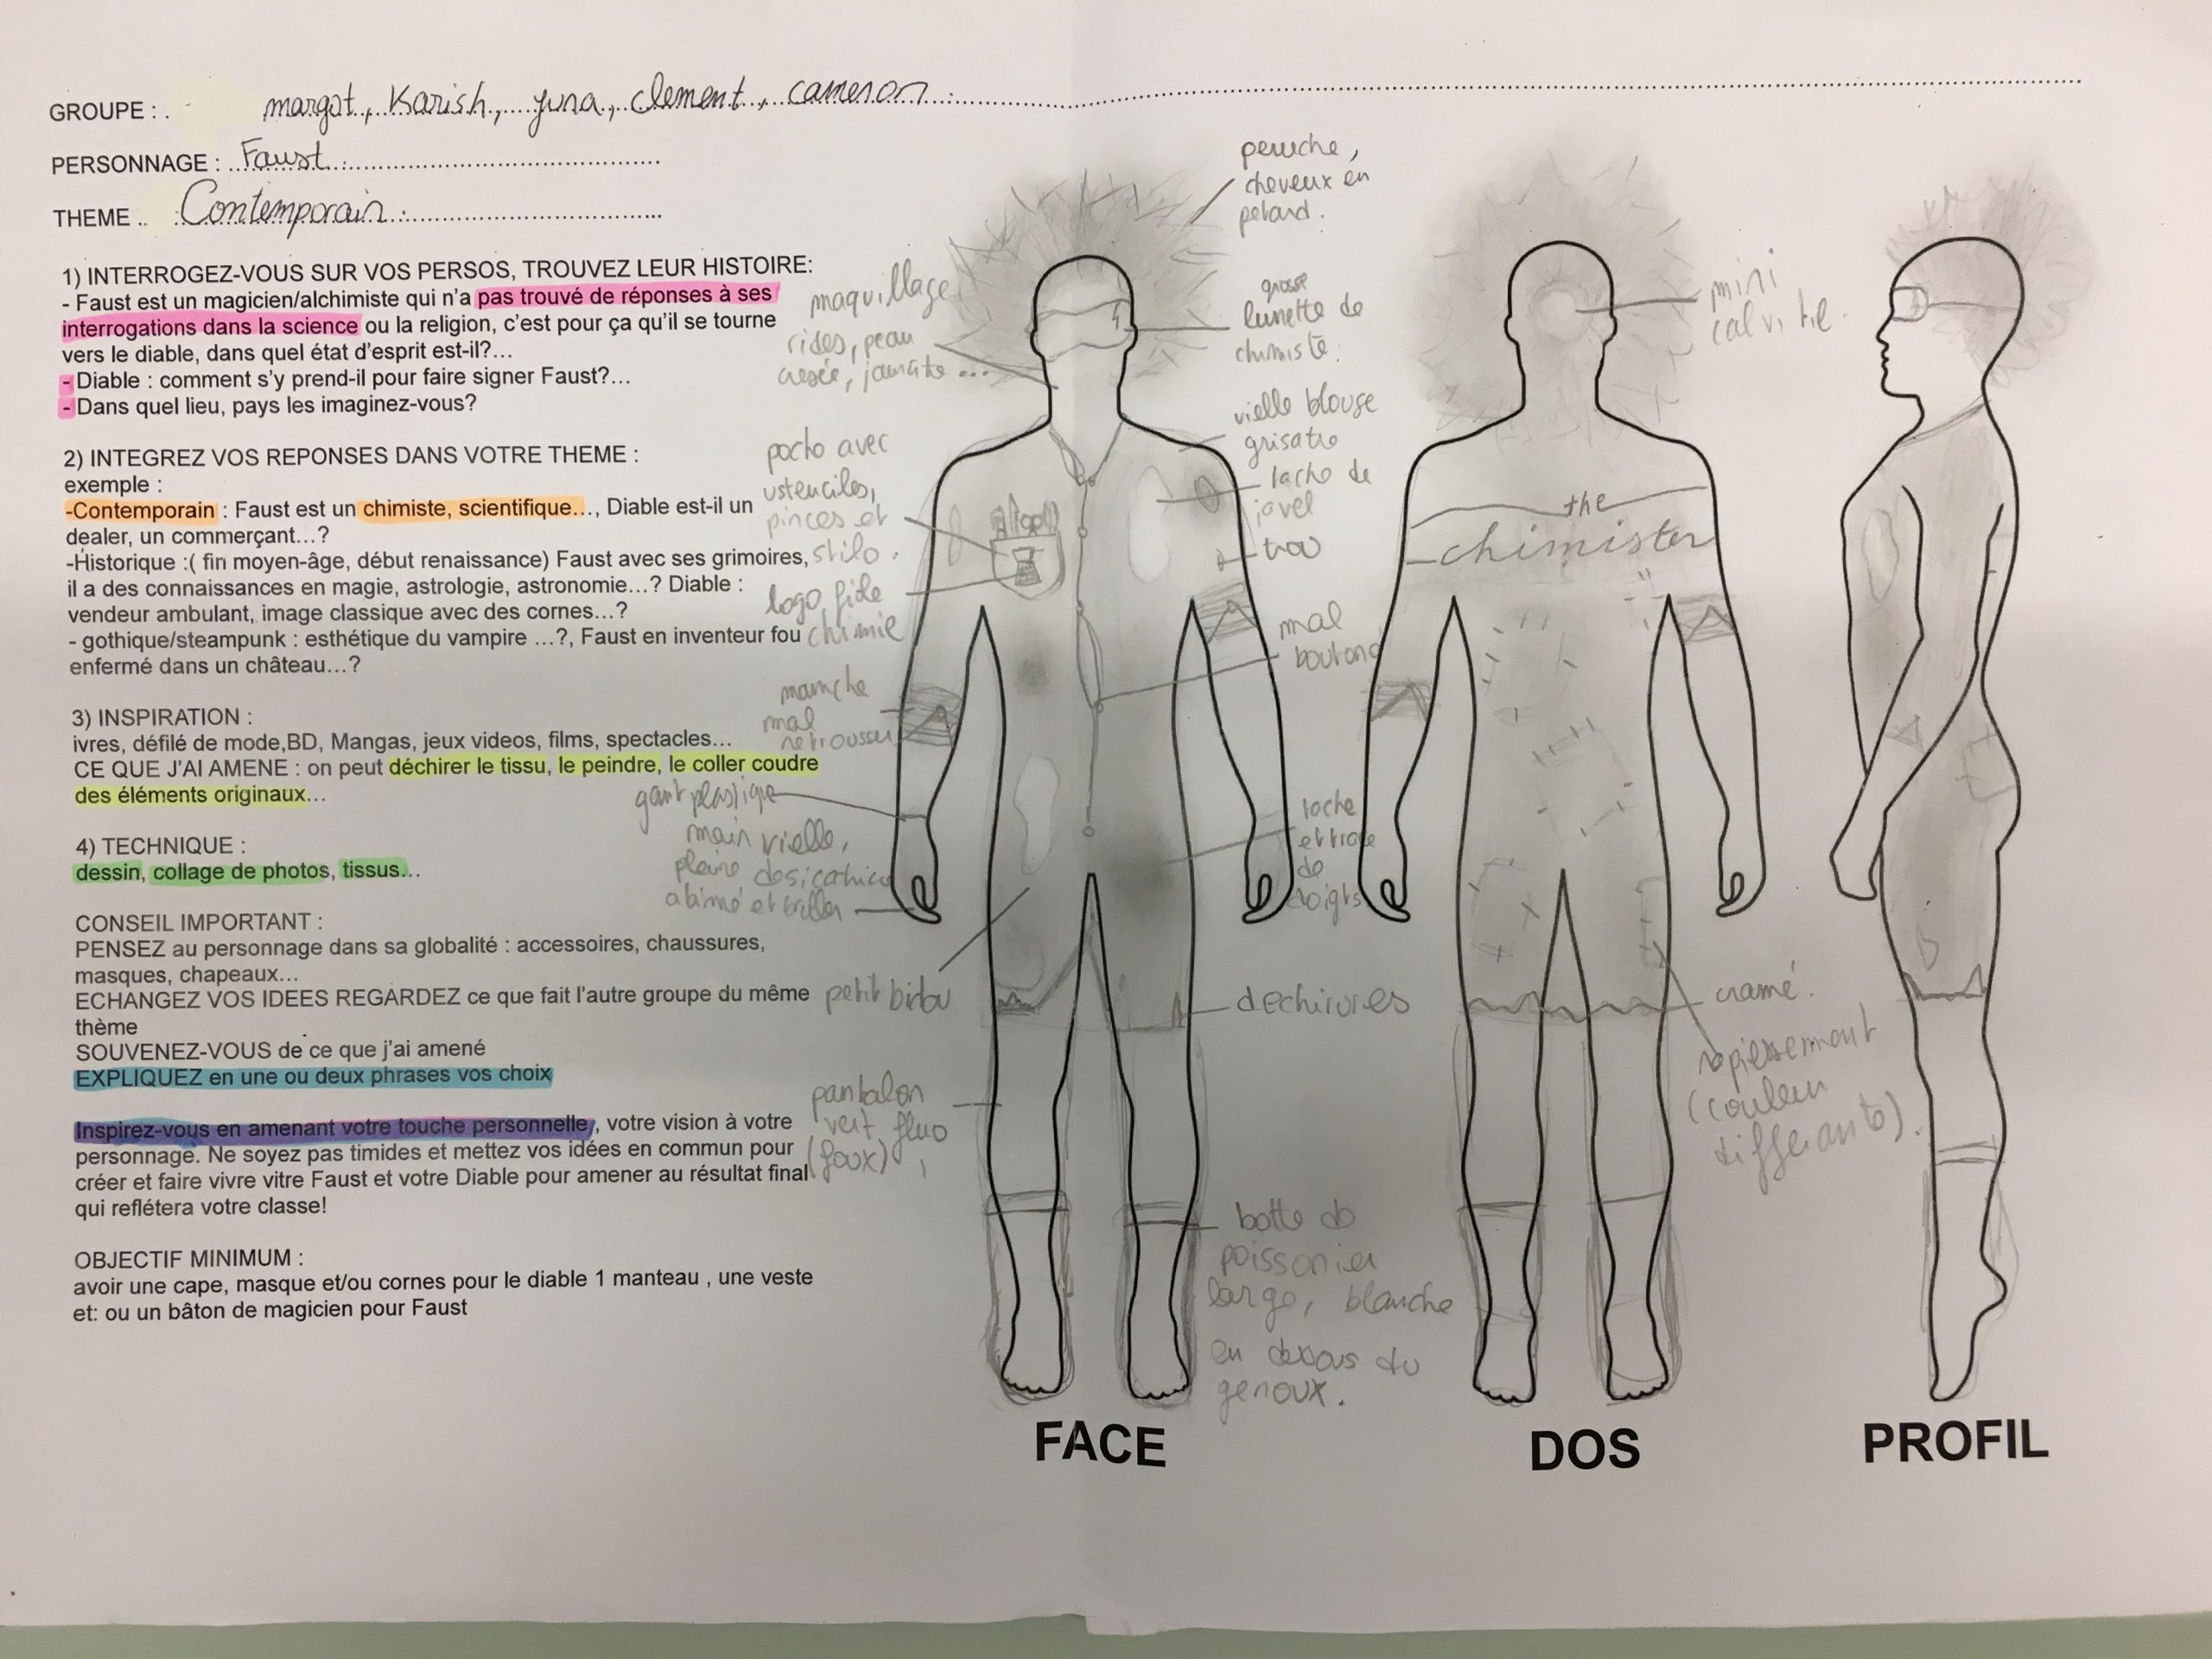 GROUPE : . margot, Karish, yuna, clement, cameron
PERSONNAGE : Faust
THEME .. Contemporain
1) INTERROGEZ-VOUS SUR VOS PERSOS, TROUVEZ LEUR HISTOIRE:
- Faust est un magicien/alchimiste qui n'a pas trouvé de réponses à ses
interrogations dans la science ou la religion, c'est pour ça qu'il se tourne
vers le diable, dans quel état d'esprit est-il?...
- Diable : comment s'y prend-il pour faire signer Faust?...
- Dans quel lieu, pays les imaginez-vous?
2) INTEGREZ VOS REPONSES DANS VOTRE THEME :
exemple :
-Contemporain : Faust est un chimiste, scientifique..., Diable est-il un
dealer, un commerçant...?
-Historique :( fin moyen-âge, début renaissance) Faust avec ses grimoires,
il a des connaissances en magie, astrologie, astronomie...? Diable :
vendeur ambulant, image classique avec des cornes...?
- gothique/steampunk : esthétique du vampire ...?, Faust en inventeur fou
enfermé dans un château...?
3) INSPIRATION :
ivres, défilé de mode,BD, Mangas, jeux videos, films, spectacles...
CE QUE J'AI AMENE : on peut déchirer le tissu, le peindre, le coller coudre
des éléments originaux...
4) TECHNIQUE :
dessin, collage de photos, tissus...
CONSEIL IMPORTANT :
PENSEZ au personnage dans sa globalité : accessoires, chaussures,
masques, chapeaux...
ECHANGEZ VOS IDEES REGARDEZ ce que fait l'autre groupe du même
thème
SOUVENEZ-VOUS de ce que j'ai amené
EXPLIQUEZ en une ou deux phrases vos choix
Inspirez-vous en amenant votre touche personnelle, votre vision à votre
personnage. Ne soyez pas timides et mettez vos idées en commun pour
créer et faire vivre vitre Faust et votre Diable pour amener au résultat final
qui reflétera votre classe!
OBJECTIF MINIMUM :
avoir une cape, masque et/ou cornes pour le diable 1 manteau , une veste
et: ou un bâton de magicien pour Faust
maquillage
rides, peau
poche avec
ustenciles,
pinces et
stilo.
logo fiole
chimie
manche
mal
retrousser
gant plastique
main vielle,
pleine
abimé et
petit bidou
pantalon
vert fluo
(faux)
peruche,
cheveux en
petard.
grosse
lunette de
chimiste.
vielle blouse
grisatre
tache de
javel
trou
mal
boutonné
tache
et trace
de
doigts
dechirures
botte de
poissonier
large, blanche
en dessous du
genoux.
mini
calvitie.
the
chimister
cramé.
rapiessement
(couleur
differante).
FACE
DOS
PROFIL